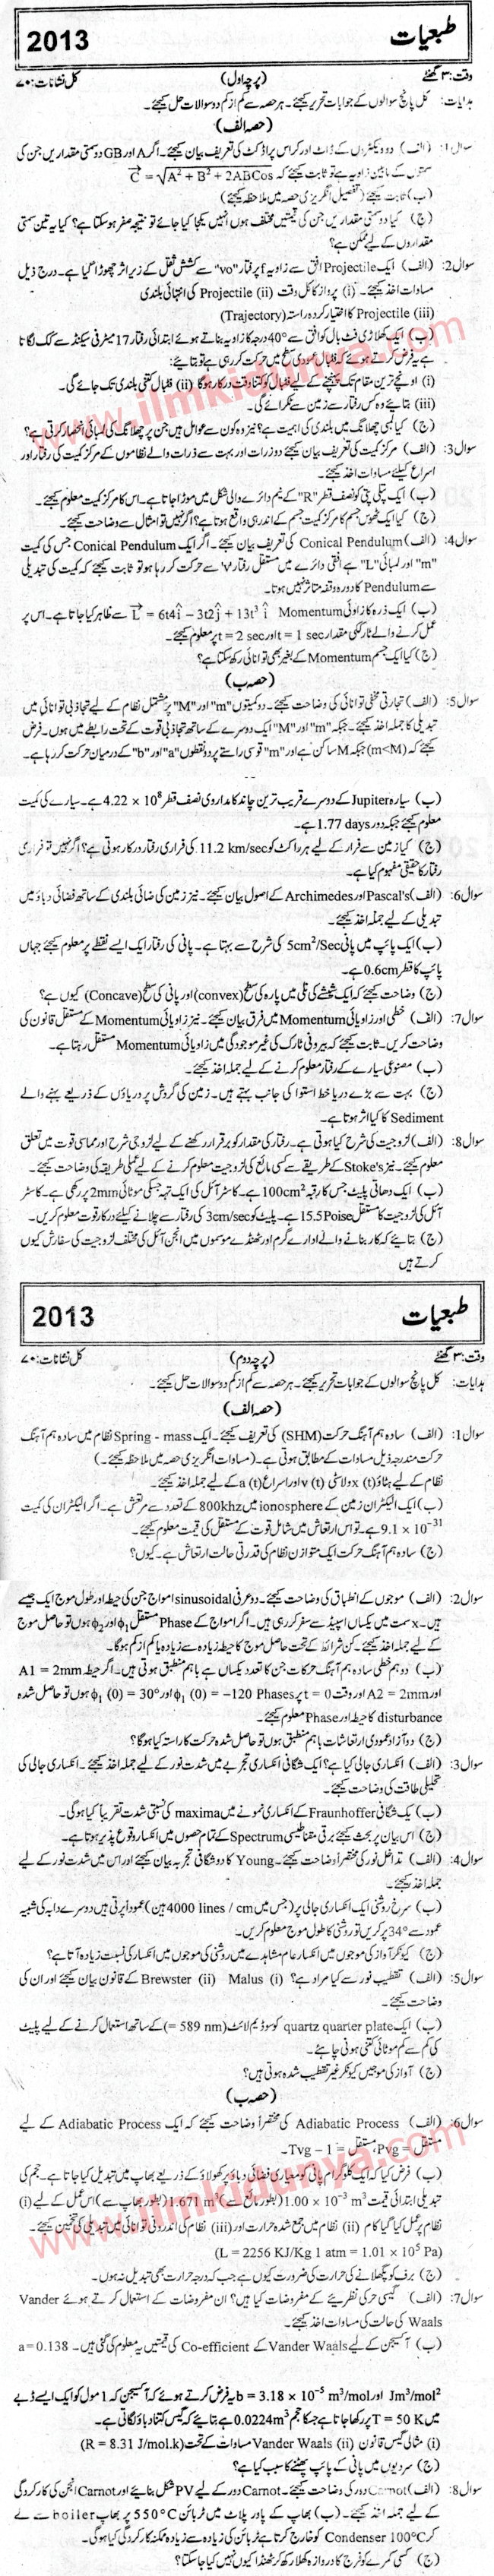 طبعیات 2013
وقت: ۳ گھنٹے (پرچہ اول) کل نشانات: ۷۰
ہدایات: کل پانچ سوالوں کے جوابات تحریر کیجئے۔ ہر حصہ سے کم از کم دو سوالات حل کیجئے۔
(حصہ الف)
سوال1: (الف) دو ویکٹروں کے ڈاٹ اور کراس پراڈکٹ کی تعریف بیان کیجئے۔ اگر A اور GB دو سمتی مقداریں جن کی
سمتوں کے مابین زاویہ ہے تو ثابت کیجئے کہ C⃗ = √A² + B² + 2ABCos
(ب) ثابت کیجئے (تفصیل انگریزی حصہ میں ملاحظہ کیجئے)
(ج) کیا دو سمتی مقداریں جن کی قیمتیں مختلف ہوں انہیں یکجا کیا جائے تو نتیجہ صفر ہوسکتا ہے؟ کیا یہ تین سمتی
مقداروں کے لیے ممکن ہے؟
سوال2: (الف) ایک Projectile افق سے زاویہ f پر رفتار "vo" سے کشش ثقل کے زیر اثر چھوڑا گیا ہے۔ درج ذیل
مساوات اخذ کیجئے۔ (i) پرواز کا کل وقت (ii) Projectile کی انتہائی بلندی
(iii) Projectile کا اختیار کردہ راستہ (Trajectory)
(ب) ایک کھلاڑی فٹ بال کو افق سے 40° درجہ کا زاویہ بناتے ہوئے ابتدائی رفتار 17 میٹر فی سیکنڈ سے کک لگاتا
ہے یہ فرض کرتے ہوئے کہ فٹبال عمودی سطح میں حرکت کر رہی ہے تو بتائیے:
(i) اونچے ترین مقام تک پہنچنے کے لیے فٹبال کو کتنا وقت درکار ہوگا (ii) فٹبال کتنی بلندی تک جائے گی۔
(iii) بتائیے وہ کس رفتار سے زمین سے ٹکرائے گی۔
(ج) کیا لمبی چھلانگ میں بلندی کی اہمیت ہے؟ نیز وہ کون سے عوامل ہیں جن پر چھلانگ کی لمبائی انحصار کرتی ہے؟
سوال3: (الف) مرکز کمیت کی تعریف بیان کیجئے دو ذرات اور بہت سے ذرات والے نظاموں کے مرکز کمیت کی رفتار اور
اسراع کیلئے مساوات اخذ کیجئے۔
(ب) ایک پتلی پٹی کو نصف قطر "R" کے نیم دائرے والی شکل میں موڑا جاتا ہے۔ اس کا مرکز کمیت معلوم کیجئے۔
(ج) کیا ایک ٹھوس جسم کا مرکز کمیت جسم کے اندر ہی واقع ہوتا ہے؟ اگر نہیں تو امثال سے وضاحت کیجئے۔
سوال4: (الف) Conical Pendulum کی تعریف بیان کیجئے۔ اگر ایک Conical Pendulum جس کی کمیت
"m" اور لمبائی "L" ہے افقی دائرے میں مستقل رفتار 'v' سے حرکت کر رہا ہو تو ثابت کیجئے کہ کمیت کی تبدیلی
سے Pendulum کا دورہ وقفہ متاثر نہیں ہوتا۔
(ب) ایک ذرہ کا زاوئی Momentum L⃗ = 6t4î − 3t2ĵ + 13t³ î سے ظاہر کیا جاتا ہے۔ اس پر
عمل کرنے والے ٹارک کی مقدار t = 1 sec اور t = 2 sec پر معلوم کیجئے۔
(ج) کیا ایک جسم Momentum کے بغیر بھی توانائی رکھ سکتا ہے؟
(حصہ ب)
سوال5: (الف) تجاذبی مخفی توانائی کی وضاحت کیجئے۔ دو کمیتوں "m" اور "M" پر مشتمل نظام کے لیے تجاذبی توانائی میں
تبدیلی کا جملہ اخذ کیجئے۔ جبکہ "m" اور "M" ایک دوسرے کے ساتھ تجاذبی قوت کے تحت رابطے میں ہوں۔ فرض
کیجئے کہ (m<M) جبکہ M ساکن ہے اور "m" قوسی راستے پر دو نقطوں "a" اور "b" کے درمیان حرکت کر رہا ہے۔
(ب) سیارہ Jupiter کے دوسرے قریب ترین چاند کا مداروی نصف قطر 4.22 × 10⁸ ہے۔ سیارے کی کمیت
معلوم کیجئے جبکہ دور 1.77 days ہے۔
(ج) کیا زمین سے فرار کے لیے ہر راکٹ کو 11.2 km/sec کی فراری رفتار درکار ہوتی ہے؟ اگر نہیں تو فراری
رفتار کا حقیقی مفہوم کیا ہے۔
سوال6: (الف) Pascal's اور Archimedes کے اصول بیان کیجئے۔ نیز زمین کی فضائی بلندی کے ساتھ فضائی دباؤ میں
تبدیلی کے لیے جملہ اخذ کیجئے۔
(ب) ایک پائپ میں پانی 5cm²/Sec کی شرح سے بہتا ہے۔ پانی کی رفتار ایک ایسے نقطے پر معلوم کیجئے جہاں
پائپ کا قطر 0.6cm ہے۔
(ج) وضاحت کیجئے کہ ایک شیشے کی نلی میں پارہ کی سطح (convex) اور پانی کی سطح (Concave) کیوں ہے؟
سوال7: (الف) خطی اور زاویائی Momentum میں فرق بیان کیجئے۔ نیز زاویائی Momentum کے مستقل قانون کی
وضاحت کریں۔ ثابت کیجئے کہ بیرونی ٹارک کی غیر موجودگی میں زاویائی Momentum مستقل رہتا ہے۔
(ب) مصنوعی سیارے کے رفتار معلوم کرنے کے لیے جملہ اخذ کیجئے۔
(ج) بہت سے بڑے دریا خط استوا کی جانب بہتے ہیں۔ زمین کی گردش پر دریاؤں کے ذریعے بہنے والے
Sediment کا کیا اثر ہوتا ہے۔
سوال8: (الف) لزوجیت کی شرح کیا ہوتی ہے۔ رفتار کی مقدار کو برقرار رکھنے کے لیے لزوجی شرح اور مماسی قوت میں تعلق
معلوم کیجئے۔ نیز Stoke's کے طریقے سے کسی مائع کی لزوجیت معلوم کرنے کے لیے عملی طریقہ کی وضاحت کیجئے۔
(ب) ایک دھاتی پلیٹ جس کا رقبہ 100cm² ہے۔ کاسٹر آئل کی ایک تہہ جسکی موٹائی 2mm پر رکھی ہے۔ کاسٹر
آئل کی لزوجیت کا مستقل 15.5 Poise ہے۔ پلیٹ کو 3cm/sec کی رفتار سے چلانے کیلئے درکار قوت معلوم کریں۔
(ج) بتائیے کہ کار بنانے والے ادارے گرم اور ٹھنڈے موسموں میں انجن آئل کی مختلف لزوجیت کی سفارش کیوں
کرتے ہیں
طبعیات 2013
وقت: ۳ گھنٹے (پرچہ دوم) کل نشانات: ۷۰
ہدایات: کل پانچ سوالوں کے جوابات تحریر کیجئے۔ ہر حصہ سے کم از کم دو سوالات حل کیجئے۔
(حصہ الف)
سوال1: (الف) سادہ ہم آہنگ حرکت (SHM) کی تعریف کیجئے۔ ایک Spring - mass نظام میں سادہ ہم آہنگ
حرکت مندرجہ ذیل مساوات کے مطابق ہوتی ہے۔ (مساوات انگریزی حصہ میں ملاحظہ کیجئے۔)
نظام کے لیے ہٹاؤ x (t) ولاسٹی v (t) اور اسراع a (t) کے لیے جملہ اخذ کیجئے۔
(ب) ایک الیکٹران زمین کے ionosphere میں 800khz کے تعدد سے مرتعش ہے۔ اگر الیکٹران کی کمیت
9.1 × 10⁻³¹ ہے۔ تو اس ارتعاش میں شامل قوت کے مستقل کی قیمت معلوم کیجئے۔
(ج) سادہ ہم آہنگ حرکت ایک متوازن نظام کی قدرتی حالت ارتعاش ہے۔ کیوں؟
سوال2: (الف) موجوں کے انطباق کی وضاحت کیجئے۔ دو عرفی sinusoidal امواج جن کی حیطہ اور طول موج ایک جیسے
ہیں۔ x سمت میں یکساں اسپیڈ سے سفر کر رہی ہیں۔ اگر امواج کے Phase مستقل φ₁ اور φ₂ ہوں تو حاصل موج
کے لیے جملہ اخذ کیجئے۔ کن شرائط کے تحت حاصل موج کا حیطہ زیادہ سے زیادہ یا کم از کم ہوگا۔
(ب) دو ہم خطی سادہ ہم آہنگ حرکات جن کا تعدد یکساں ہے باہم منطبق ہوتی ہیں۔ اگر حیطہ A1 = 2mm
اور A2 = 2mm اور وقت t = 0 پر Phases φ₁ (0) = −120 اور φ₁ (0) = 30° ہوں تو حاصل شدہ
disturbance کا حیطہ اور Phase معلوم کیجئے۔
(ج) دو آزاد عمودی ارتعاشات باہم منطبق ہوں تو حاصل شدہ حرکت کا راستہ کیا ہوگا؟
سوال3: (الف) انکساری جالی کیا ہے؟ ایک شگافی انکساری تجربے میں شدت نور کے لیے جملہ اخذ کیجئے۔ انکساری جالی کی
تحلیلی طاقت کی وضاحت کیجئے۔
(ب) یک شگافی Fraunhoffer کے انکساری نمونے میں maxima کی نسبتی شدت تقریباً کیا ہوگی۔
(ج) اس بیان پر بحث کیجئے برقی مقناطیسی Spectrum کے تمام حصوں میں انکسار وقوع پذیر ہوتا ہے۔
سوال4: (الف) تداخل نور کی مختصراً وضاحت کیجئے۔ Young کا دو شگافی تجربہ بیان کیجئے اور اس میں شدت نور کے لیے
جملہ اخذ کیجئے۔
(ب) سرخ روشنی ایک انکساری جالی پر (جس میں 4000 lines / cm ہیں) عموداً پڑتی ہیں دوسرے دابہ کی شبیہ
عمود سے 34° پر کریں تو روشنی کا طول موج معلوم کریں۔
(ج) کیونکر آواز کی موجوں میں انکسار عام مشاہدے میں روشنی کی موجوں میں انکسار کی نسبت زیادہ آتا ہے؟
سوال5: (الف) تقطیب نور سے کیا مراد ہے؟ (i) Malus (ii) Brewster کے قانون بیان کیجئے اور ان کی
وضاحت کیجئے۔
(ب) ایک quartz quarter plate کو سوڈیم لائٹ (= 589 nm) کے ساتھ استعمال کرنے کے لیے پلیٹ
کی کم سے کم موٹائی کتنی ہونی چاہئے۔
(ج) آواز کی موجیں کیونکر غیر تقطیب شدہ ہوتی ہیں؟
(حصہ ب)
سوال6: (الف) Adiabatic Process کی مختصراً وضاحت کیجئے کہ ایک Adiabatic Process کے لیے
مستقل = Pvg، مستقل = Tvg − 1۔
(ب) فرض کیا کہ ایک کلوگرام پانی کو معیاری فضائی دباؤ پر کھولاؤ کے ذریعے بھاپ میں تبدیل کیا جاتا ہے۔ حجم کی
تبدیلی ابتدائی قیمت 1.00 × 10⁻³ m³ (بطور مائع سے) 1.671 m³ (بطور بھاپ سے) اس عمل کے لیے (i)
نظام پر عمل کیا گیا کام (ii) نظام میں جمع شدہ حرارت اور (iii) نظام کی اندرونی توانائی میں تبدیلی کی تخمین کیجئے۔
(L = 2256 KJ/Kg 1 atm = 1.01 × 10⁵ Pa)
(ج) برف کو پگھلانے کی حرارت کی ضرورت کیوں ہے جب کہ درجہ حرارت بھی تبدیل نہ ہوں۔
سوال7: (الف) گیسی حرکی نظریئے کے مفروضات کیا ہیں؟ ان مفروضات کے استعمال کرتے ہوئے Vander
Waals کی حالت کی مساوات اخذ کیجئے۔
(ب) آکسیجن کے لیے Vander Waals کے Co-efficient کی قیمتیں یہ معلوم کی گئی ہیں۔ a = 0.138
Jm³/mol² اور b = 3.18 × 10⁻⁵ m³/mol یہ فرض کرتے ہوئے کہ آکسیجن کہ 1 مول کو ایک ایسے ڈبے
میں T = 50 K پر رکھا جاتا ہے جسکا حجم 0.0224m³ ہے بتائیے کہ گیس کتنا دباؤ لگاتی ہے۔
(i) مثالی گیس قانون (ii) Vander Waals مساوات کے تحت (R = 8.31 J/mol.k)
(ج) سردیوں میں پانی کے پائپ پھٹنے کا سبب کیا ہے؟
سوال8: (الف) Carnot دور کی وضاحت کیجئے۔ Carnot دور کے لیے PV شکل بنائیے اور Carnot انجن کی کارکردگی
کے لیے جملہ اخذ کیجئے۔ (ب) بھاپ کے پاور پلانٹ میں ٹربائن 550°C پر بھاپ boiler سے لے
کر Condenser 100°C کو خارج کرتا ہے ٹربائن کی زیادہ سے زیادہ ممکنہ کارکردگی کیا ہوگی۔
(ج) کسی کمرے کو فریج کا دروازہ کھلا رکھ کر ٹھنڈا کیوں نہیں کیا جاسکتا؟
www.ilmkidunya.com
www.ilmkidunya.com